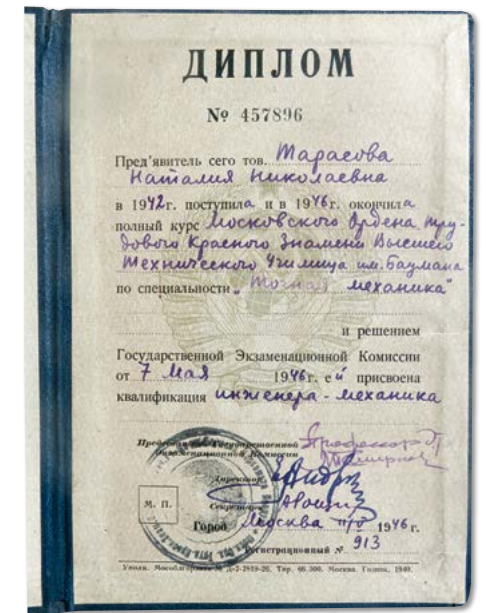 ДИПЛОМ
№ 457896
Пред'явитель сего тов. Тарасова
Наталия Николаевна
в 1942г. поступила и в 1946г. окончила
полный курс Московского Ордена Тру-
дового Красного Знамени Высшего
Технического Училища им. Баумана
по специальности „Точная механика"
и решением
Государственной Экзаменационной Комиссии
от 7 Мая 1946г. ей присвоена
квалификация инженера-механика
Председатель Государственной Профессор
Экзаменационной Комиссии
Директор
Секретарь
М. П.
Город Москва 1946 г.
Регистрационный № 913
Москва. Гознак. 1940.